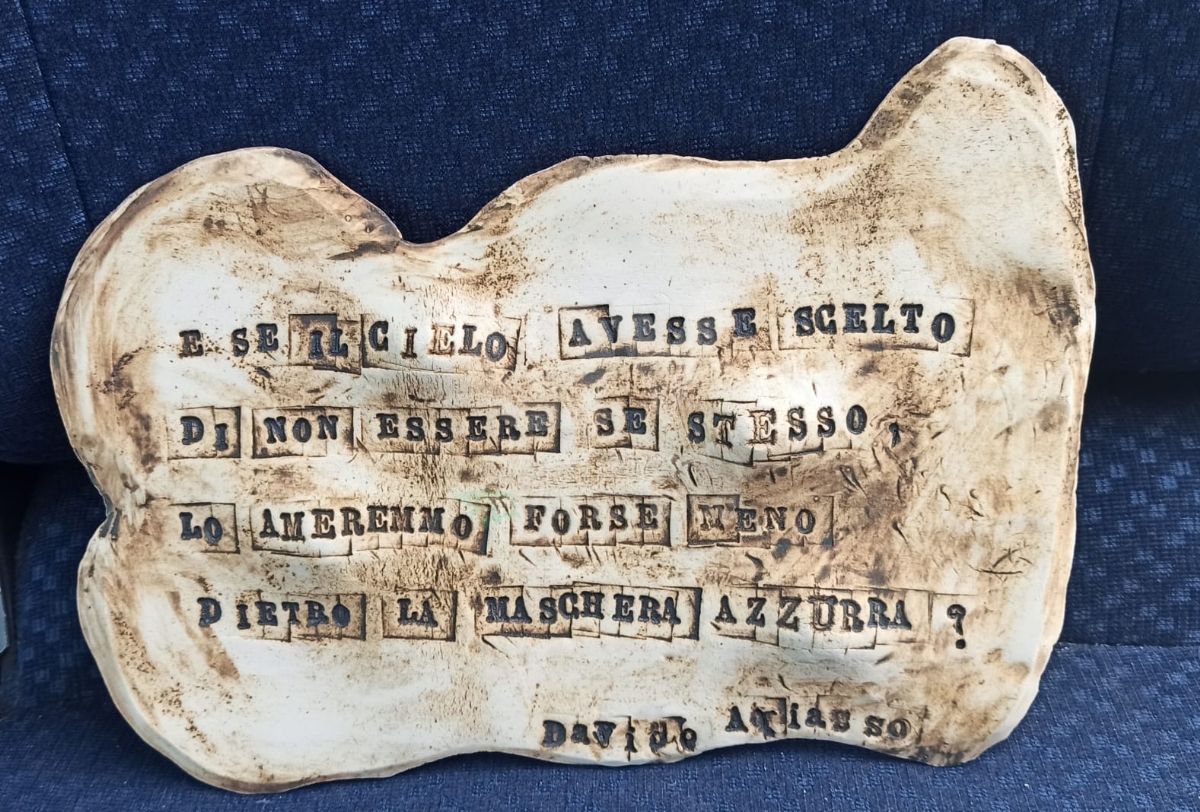 E SE IL CIELO AVESSE SCELTO
DI NON ESSERE SE STESSO,
LO AMEREMMO FORSE MENO
DIETRO LA MASCHERA AZZURRA ?